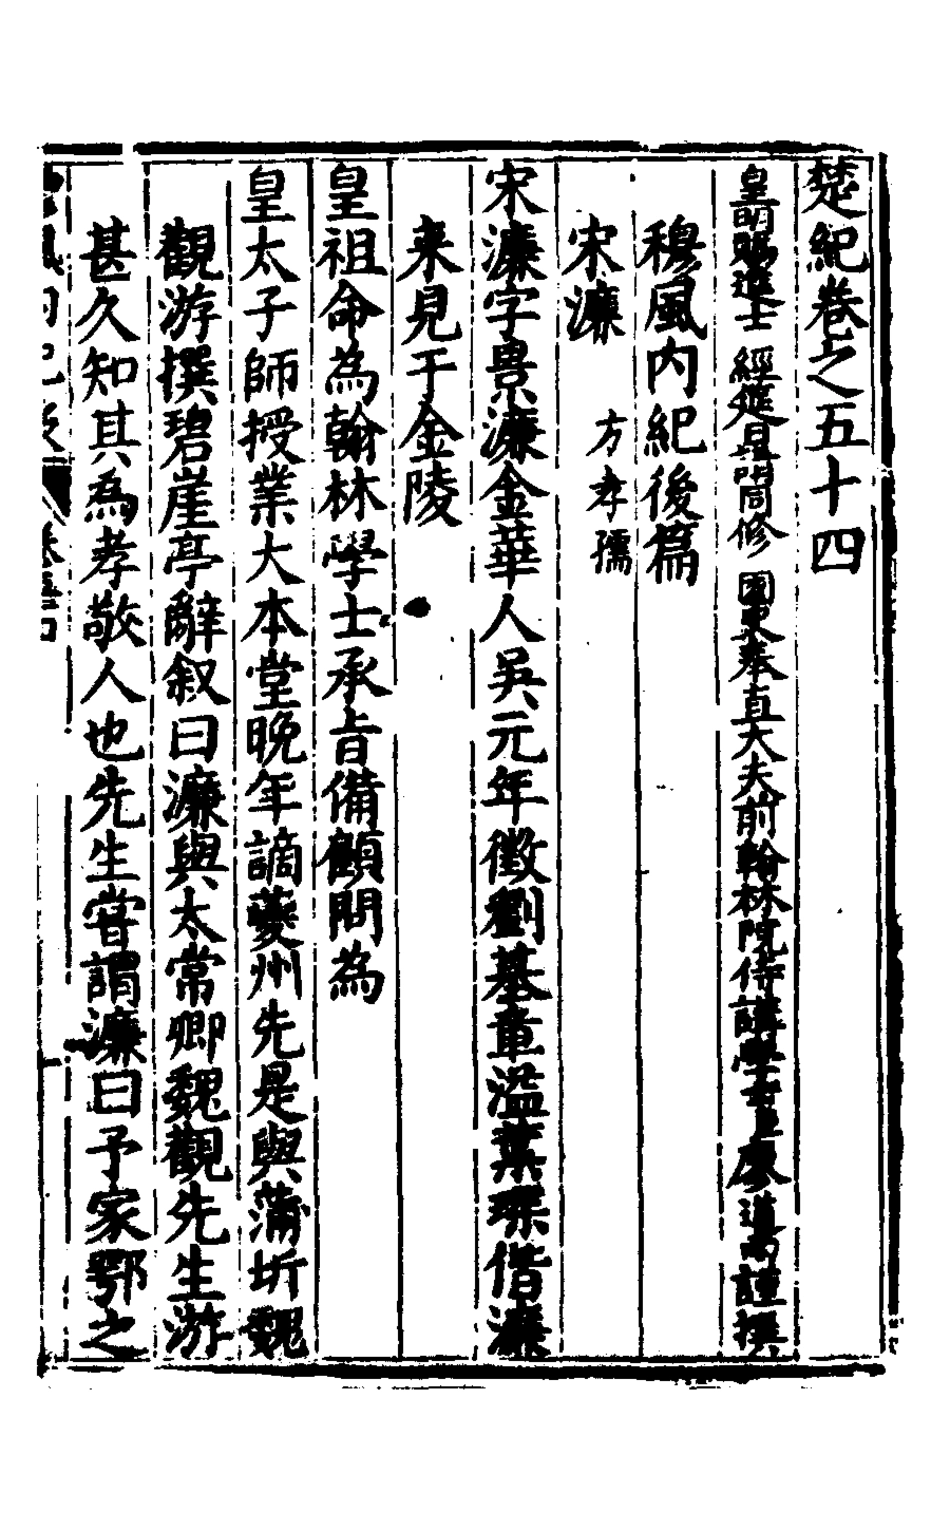 楚紀卷之五十四
皇明賜進士 經筵日講同修 國史奉直大夫前翰林院侍講學士臣廖道南謹撰
穆風内紀後篇
宋濂 方孝孺
宋濂字景濂金華人吳元年徵劉基章溢葉琛偕濂
来見于金陵
皇祖命為翰林學士承旨備顧問為
皇太子師授業大本堂晚年謫夔州先是與蒲圻魏
觀游撰碧崖亭辭叙曰濂與太常卿魏觀先生游
甚久知其為孝敬人也先生嘗謂濂曰予家鄂之